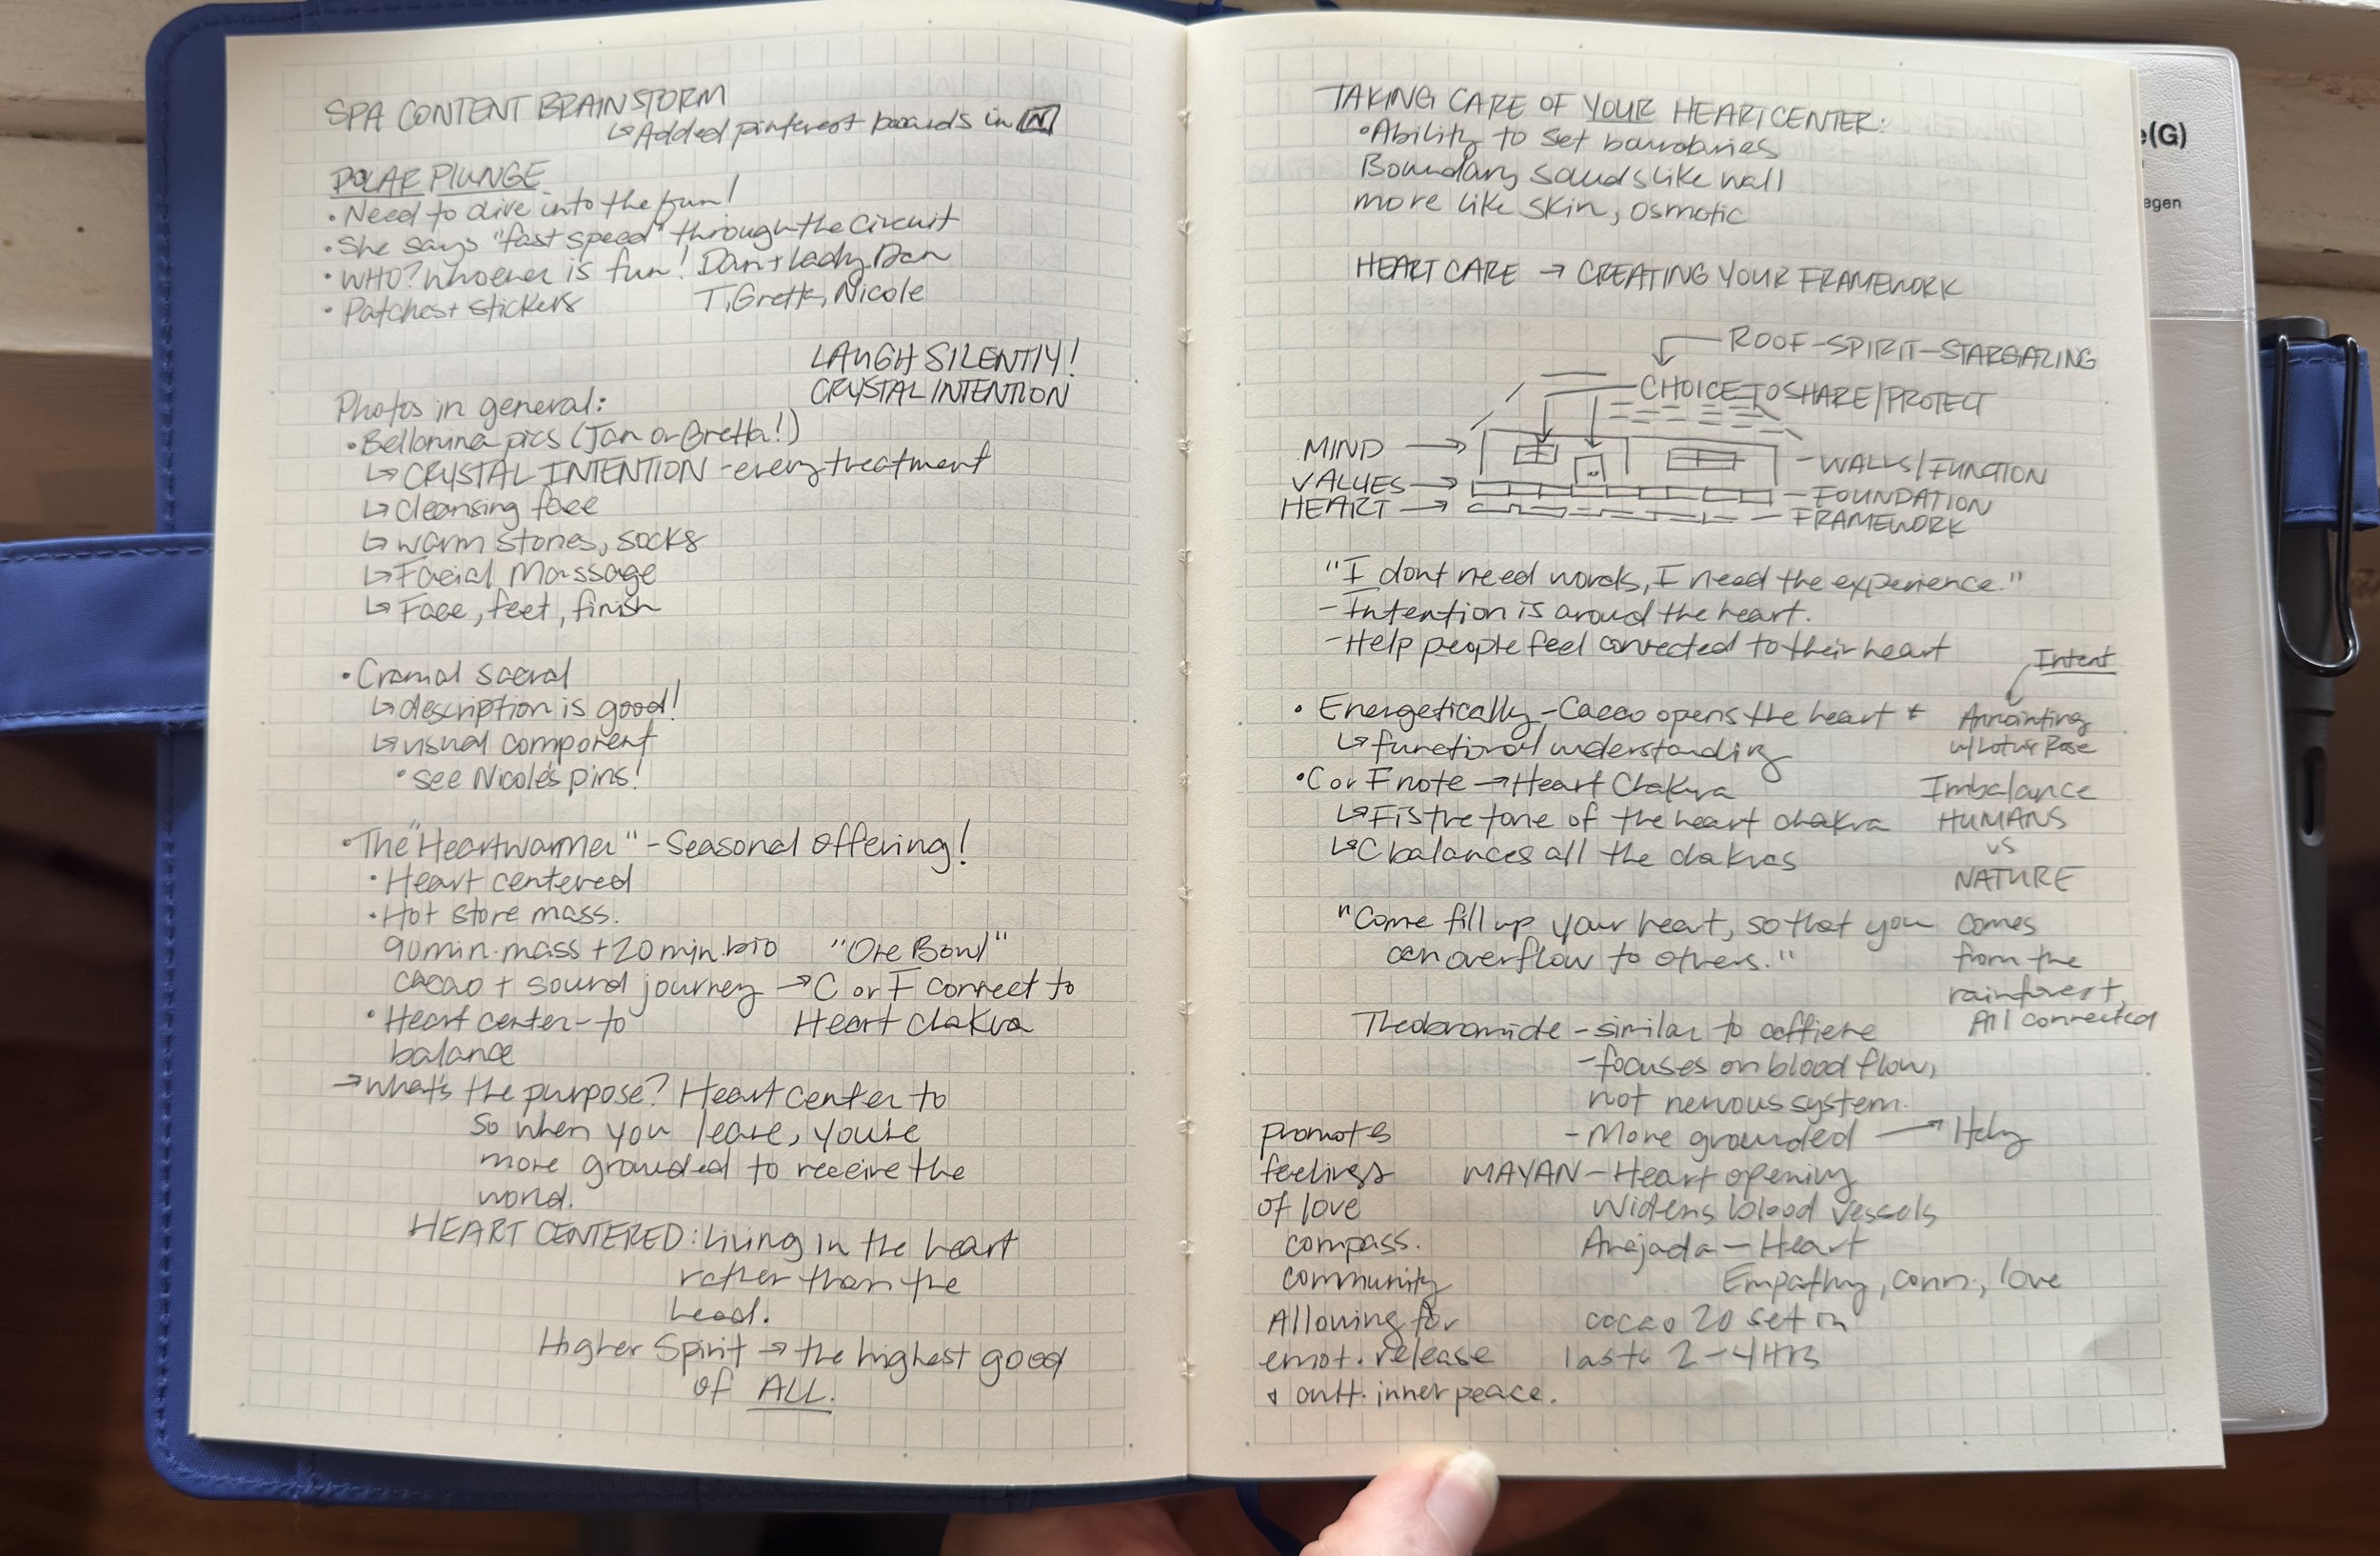 SPA CONTENT BRAINSTORM
↳ Added pinterest boards in N
POLAR PLUNGE
• Need to dive into the fun!
• She says "fast speed" through the circuit
• WHO? Whoever is fun! Dan + Lady Dan
T, Gretta, Nicole
• Patches + stickers
LAUGH SILENTLY!
CRYSTAL INTENTION
Photos in general:
• Bellanina pics (Jan or Gretta!)
↳ CRYSTAL INTENTION - every treatment
↳ Cleansing face
↳ warm stones, socks
↳ Facial Massage
↳ Face, feet, finish
• Cranial sacral
↳ description is good!
↳ visual component
• see Nicole's pins!
• The "Heartwarmer" - Seasonal Offering!
• Heart centered
• Hot stone mass.
90 min. mass + 20 min. bio
"One Bowl"
cacao + sound journey → C or F connect to
Heart Chakra
• Heart center - to
balance
→ What's the purpose? Heart center to
so when you leave, you're
more grounded to receive the
world.
HEART CENTERED: living in the heart
rather than the
head.
Higher Spirit → the highest good
of ALL.
TAKING CARE OF YOUR HEART CENTER:
• Ability to set boundaries
Boundary sounds like wall
more like skin, osmotic
HEART CARE → CREATING YOUR FRAMEWORK
ROOF - SPIRIT - STARGAZING
CHOICE TO SHARE/PROTECT
MIND →
VALUES →
HEART →
- WALLS/FUNCTION
- FOUNDATION
- FRAMEWORK
"I dont need words, I need the experience."
- Intention is around the heart.
- Help people feel connected to their heart
Intent
Annointing
w/ Lotus Rose
• Energetically - Cacao opens the heart +
↳ functional understanding
• C or F note → Heart Chakra
↳ F is the tone of the heart chakra
↳ C balances all the chakras
Imbalance
HUMANS
vs
NATURE
"Come fill up your heart, so that you
can overflow to others."
comes
from the
rainforest,
All connected
Theobromide - similar to caffiene
- focuses on blood flow,
not nervous system.
- More grounded →
MAYAN - Heart opening
Widens blood vessels
- Heart
Empathy, conn., love
cacao 20 set in
lasts 2-4 HRS
promotes
feelings
of love
compass.
community
Allowing for
emot. release
+ inner peace.